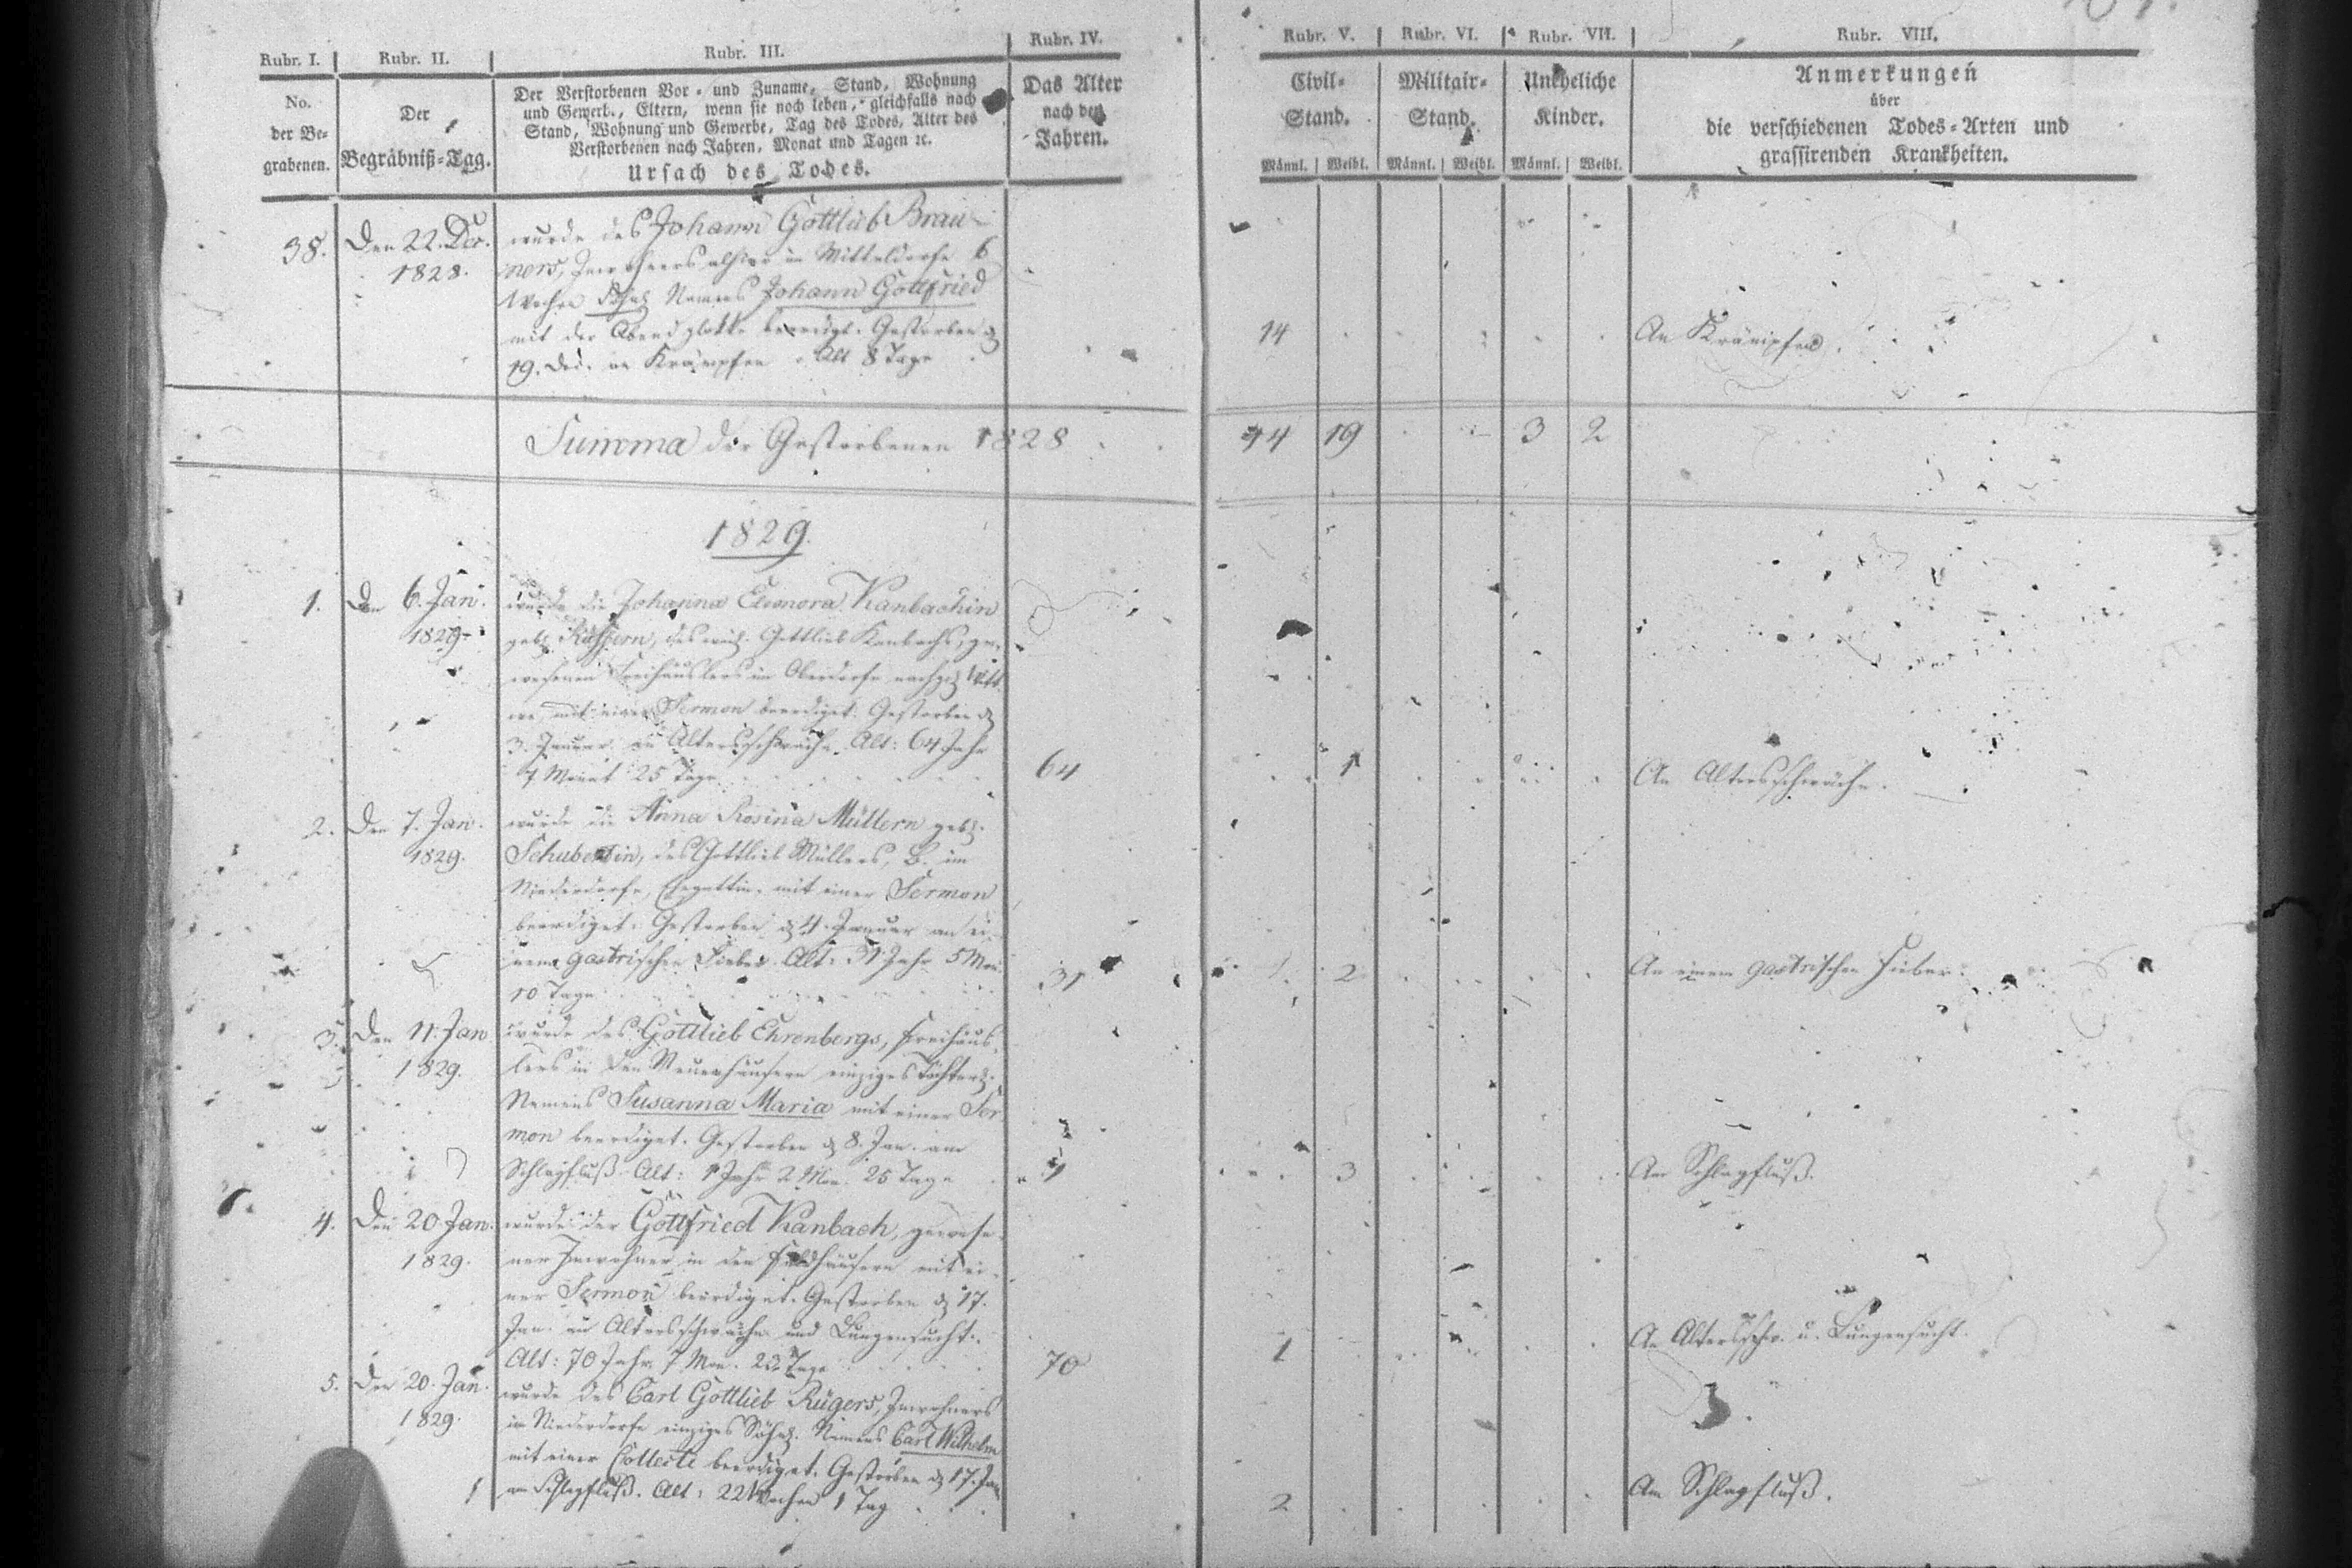 Rubr. I. Rubr. II. Rubr. III. Rubr. IV. Rubr. V. Rubr. VI. Rubr. VII. Rubr. VIII.
No.
der Be-
grabenen.
Der
Begräbniß-Tag.
Der Verstorbenen Vor- und Zuname, Stand, Wohnung
und Gewerb., Eltern, wenn sie noch leben, gleichfalls nach
Stand, Wohnung und Gewerbe, Tag des Todes, Alter des
Verstorbenen nach Jahren, Monat und Tagen ꝛc.
Ursach des Todes.
Das Alter
nach den
Jahren.
Civil-
Stand.
Männl. Weibl.
Militair-
Stand.
Männl. Weibl.
Uneheliche
Kinder.
Männl. Weibl.
Anmerkungen
über
die verschiedenen Todes-Arten und
grassirenden Krankheiten.
38. Den 22. Dec.
1828.
wurde des Johann Gottlieb Brau-
ners, Inwohners alhier im Mitteldorfe 6
Wochen Namens Johann Gottfried
mit der Abendglocke beerdigt. Gestorben d
19. Dec. an Krämpfen. Alt 8 Tage
14 An Krämpfen.
Summa der Gestorbenen 1828 14 19 3 2
1829.
1. Den 6. Jan.
1829.
wurde die Johanna Eleonora Kanbachin
geb. des weil. Gottlieb Kanbachs, ge-
wesenen Freihäuslers im Oberdorfe nachgel. Witt
we, mit einer Sermon beerdiget. Gestorben d
3. Januar an Altersschwäche. Alt: 64 Jahr
7 Monat 25 Tage 64 1 An Altersschwäche.
2. Den 7. Jan.
1829.
wurde die Anna Rosina Müllern geb.
Schubertin, des Gottlieb Müllers, B. im
Niederdorfe, Ehegattin, mit einer Sermon
beerdiget. Gestorben d 4. Januar an ei-
nem gastrischen Fieber. Alt: 31 Jahr 5 Mon.
10 Tage 31 2 An einem gastrischen Fieber.
3. Den 11. Jan
1829.
wurde des Gottlieb Ehrenbergs, Freihäus-
lers in den Neuenhäusern einziges Töchterl.
Namens Susanna Maria mit einer Ser
mon beerdiget. Gestorben d 8. Jan. am
Schlagfluß. Alt: 1 Jahr 2 Mon. 25 Tage 1 3 Am Schlagfluß.
4. Den 20. Jan.
1829.
wurde der Gottfried Kanbach, gewese-
ner Inwohner in den Feldhäusern mit ei-
ner Sermon beerdiget. Gestorben d 17.
Jan. an Altersschwäche und Lungensucht.
Alt: 70 Jahr 7 Mon. 22 Tage 70 1 An Altersschw. u. Lungensucht.
5. Den 20. Jan.
1829.
wurde des Carl Gottlieb Rügers, Inwohners
im Niederdorfe einziges Söhnl. Namens Carl Wilhelm
mit einer Collecte beerdiget. Gestorben d 17. Jan
am Schlagfluß. Alt: 22 Wochen 1 Tag 2 Am Schlagfluß.